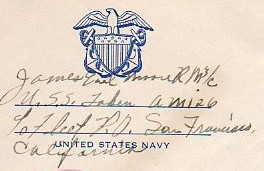 James Earl Moore RM3/c
U.S.S. Token AM126
℅ Fleet P.O. San Francisco,
California
UNITED STATES NAVY